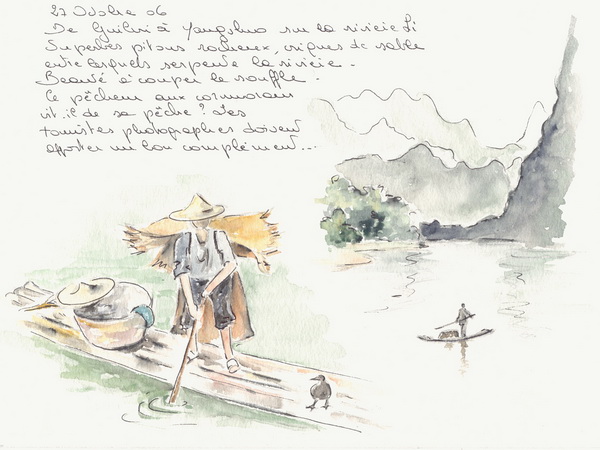 27 Octobre 06
De Guilin à Yangshuo sur la rivière Li
Superbes pitons rocheux, criques de sable
entre lesquels serpente la rivière.
Beauté à couper le souffle.
Ce pêcheur aux cormorans
vit-il de sa pêche ? Les
touristes photographes doivent
apporter un bon complément...